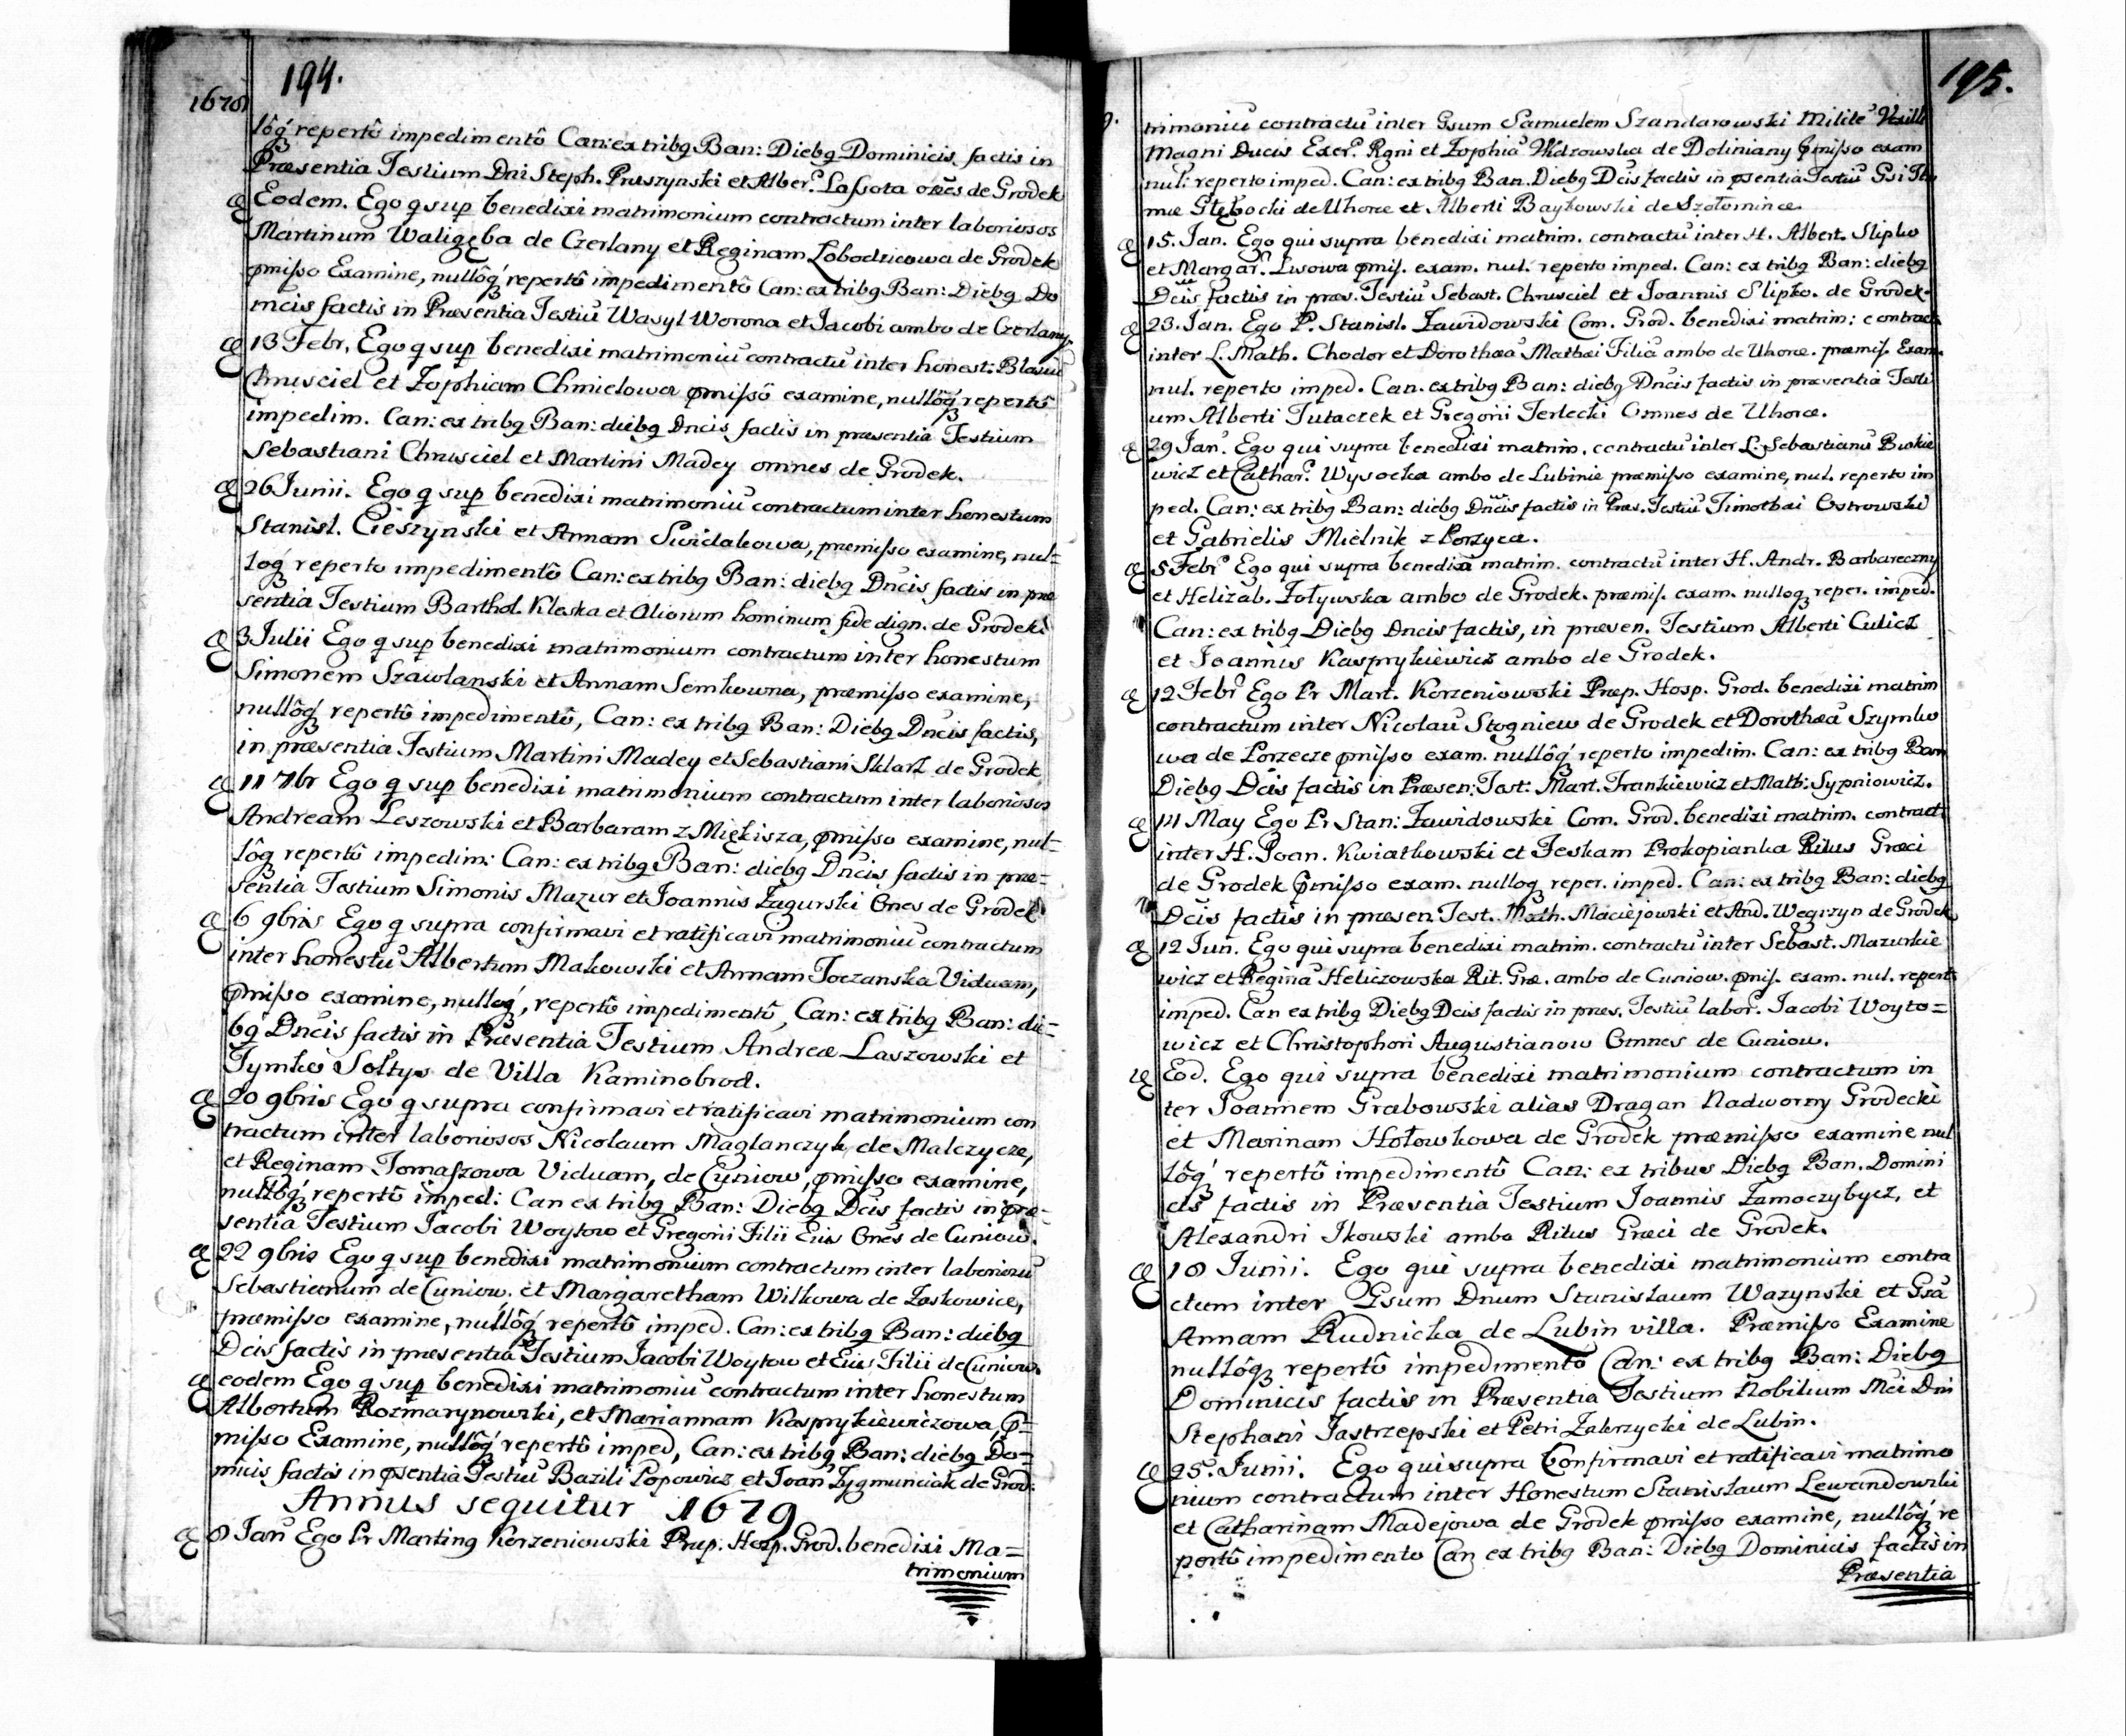 194.
1678
lôq́ʒ repertô impedimentô Can: ex tribq Ban: Diebq Dominicis factis in
Præsentia Testium Dni Steph. Pruszynski et Alber. Lassota oẽs de Grodek
Eodem. Ego q sup benedixi matrimonium contractum inter laboriosos
Martinum Waligęba de Czerlany et Reginam Łobodzicowa de Grodek
pmisso Examine, nullôq́ʒ repertô impedimentô Can: ex tribq Ban: Diebq Do
mcis factis in Præsentia Testiũ Wasyl Worona et Jacobi ambo de Czerlany.
13 Febr. Ego q sup benedixi matrimoniũ contractũ inter honest: Blasiũ
Chrusciel et Zophiam Chmielowa pmissô examine, nullôq́ʒ repertô
impedim. Can: ex tribq Ban: diebq Dncis factis in præsentia Testium
Sebastiani Chrusciel et Martini Madey omnes de Grodek.
26 Junii. Ego q sup benedixi matrimoniũ contractum inter honestum
Stanisl. Cieszynski et Annam Swidakowa, præmisso examine, nul=
lôq́ʒ reperto impedimentô Can: ex tribq Ban: diebq Dncis factis in præ
sentia Testium Barthol. Kleska et Aliorum hominum fide dign. de Grodek.
3 Julii Ego q sup benedixi matrimonium contractum inter honestum
Simonem Szawlanski et Annam Semkowna, præmisso examine,
nullôq́ʒ repertô impedimentô, Can: ex tribq Ban: Diebq Dncis factis,
in præsentia Testium Martini Madey et Sebastiani Sklarz de Grodek
11 7br Ego q sup benedixi matrimonium contractum inter laboriosos
Andream Leszowski et Barbaram z Miękisza, pmisso examine, nul=
lôqʒ repertô impedim: Can: ex tribq Ban: diebq Dncis factis in præ=
sentia Testium Simonis Mazur et Joannis Zagurski Ones de Grodek
6 9bris Ego q supra confirmavi et ratificavi matrimoniũ contractum
inter honestũ Albertum Makowski et Annam Toczanska Viduam,
pmisso examine, nulloq́ʒ, repertô impedimentô, Can: ex tribq Ban: die=
bq Dncis factis in Præsentia Testium Andreæ Laszowski et
Tymko Sołtys de Villa Kaminobrod.
20 9bris Ego q supra confirmavi et ratificavi matrimonium con
tractum inter laboriosos Nicolaum Maglanczyk de Malczycze,
et Reginam Tomaszowa Viduam, de Cuniow, pmisso examine,
nullôq́ʒ repertô imped: Can ex tribq Ban: Diebq Dcis factis in præ=
sentia Testium Jacobi Woytow et Gregorii Filii Eius Ones de Cuniow.
22 9bris Ego q sup benedixi matrimonium contractum inter laboriosũ
Sebastianum de Cuniow. et Margaretham Wilkowa de Zaskowice,
præmisso examine, nullôq́ʒ repertô imped. Can: ex tribq Ban: diebq
Dcis factis in præsentia Testium Jacobi Woytow et Eius Filii de Cuniow.
eodem Ego q sup benedixi matrimoniũ contractum inter honestum
Albertum Rozmarynowski, et Mariannam Kasprykiewiczowa, p=
misso Examine, nullôq́ʒ repertô imped, Can: ex tribq Ban: diebq Do=
micis factis in psentia Testiũ Bazili Popowicz et Joan Zygmunciak de Grod.
Annus sequitur 1679
8 Jan Ego Pr Martinq Korzeniowski Præp. Hosp. Grod. benedixi Ma=
trimonium
195.
9.
trimoniũ contractũ inter Gsum Samuelem Szandarowski Militẽ
Magni Ducis Exer. Rgni et Zophiã Widzowska de Doliniany pmisso exam
nul: reperto imped. Can: ex tribq Ban. Diebq Dcis factis in psentia Testiũ Gsi
mæ Głębocki de Uhorce et Alberti Baykowski de Szołomince.
15. Jan. Ego qui supra benedixi matrim. contractũ inter H. Albert. Slipko
et Margar. Lwowa pmis. exam. nul. reperto imped. Can: ex tribq Ban: diebq
Dcis factis in præs. Testiũ Sebast. Chrusciel et Joannis Slipko. de Grodek.
23. Jan. Ego P. Stanisl. Zawidowski Com. Grod. benedixi matrim: contract
inter L. Math. Chodor et Dorothæã Mathæi Filiã ambo de Uhorce. præmis. Exam.
nul. reperto imped. Can. ex tribq Ban: diebq Dncis factis in præsentia Testi
um Alberti Tutaczek et Gregorii Terlecki Omnes de Uhorce.
29 Jan. Ego qui supra benedixi matrim. contractũ inter L. Sebastianũ Buskie
wicz et Cathar. Wysocka ambo de Lubinie præmisso examine, nul. reperto im
ped. Can: ex tribq Ban: diebq Dncis factis in Præs. Testiũ Timothæi Ostrowski
et Gabrielis Mielnik z Porzyca.
5 Febr Ego qui supra benedixi matrim. contractũ inter H. Andr. Barbareczny
et Helizab. Zoływska ambo de Grodek. præmis. exam. nulloqʒ reper. imped.
Can: ex tribq Diebq Dncis factis, in præsen. Testium Alberti Culicz
et Joannis Kasprykiewicz ambo de Grodek.
12 Febr Ego Pr Mart. Korzeniowski Præp. Hosp. Grod. benedixi matrim
contractum inter Nicolaũ Stogniew de Grodek et Dorothæã Szymko
wa de Porzecze pmisso exam. nullôq́ʒ reperto impedim. Can: ex tribq Ban
Diebq Dcis factis in Præsen: Test: Mart. Frankiewicz et Math: Sypniowicz.
14 May Ego Pr Stan: Zawidowski Com. Grod. benedixi matrim. contract.
inter H. Joan. Kwiatkowski et Teskam Prokopianka Ritus Græci
de Grodek pmisso exam. nulloqʒ reper. imped. Can: ex tribq Ban: diebq
Dcis factis in præsen Test. Math. Maciejowski et And. Wegrzyn de Grodek
12 Jun. Ego qui supra benedixi matrim. contractũ inter Sebast. Mazurkie
wicz et Reginã Heliczowska Rit. Græ. ambo de Cuniow. pmis. exam. nul. repert.
imped. Can ex tribq Diebq Dcis factis in præs. Testiũ labor. Jacobi Woyto=
wicz et Christophori Augustianow Omnes de Cuniow.
Eod. Ego qui supra benedixi matrimonium contractum in
ter Joannem Grabowski alias Dragan Nadworny Grodecki
et Marinam Hołowkowa de Grodek præmisso examine nul
lôq́ʒ repertô impedimentô Can: ex tribus Diebq Ban. Domini
cis factis in Præsentia Testium Joannis Zamoczybycz, et
Alexandri Ikowski ambo Ritus Græci de Grodek.
18 Junii. Ego qui supra benedixi matrimonium contra
ctum inter Gsum Dnum Stanislaum Wazynski et Gsã
Annam Rudnicka de Lubin villa. Præmisso Examine
nullôqʒ repertô impedimentô Can: ex tribq Ban: Diebq
Dominicis factis in Præsentia Testium Nobilium Mci Dni
Stephani Jastrzepski et Petri Zakrzycki de Lubin.
25. Junii. Ego qui supra Confirmavi et ratificavi matrimo
nium contractum inter Honestum Stanislaum Lewandowski
et Catharinam Madejowa de Grodek pmisso examine, nullôq́ʒ re
pertô impedimento Can ex tribq Ban: Diebq Dominicis factis in
Præsentia